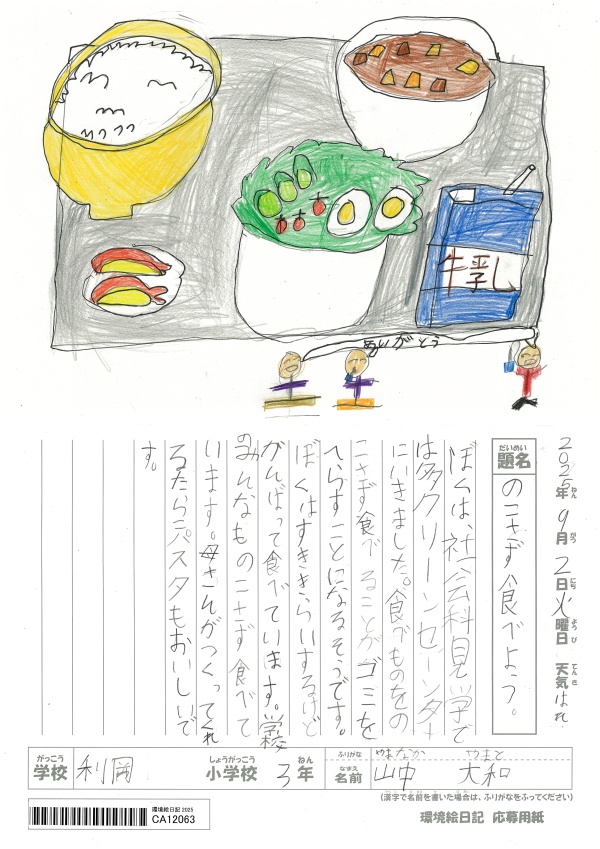 牛乳
ありがとう
2025年 9月 2日 火曜日 天気 はれ
ねん がつ にち ようび てんき
だいめい
題名
のこさず食べよう。
ぼくは、社会科見学で
は多クリーンセーンタ
にいきました。食べものをの
こさず食べることがゴミを
へらすことになるそうです。
ぼくはすききらいするけど
がんばって食べています。学校
のみんなものこさず食べて
います。母さんがつくってくれ
るたらこパスタもおいしいで
す。
がっこう
学校 利岡
しょうがっこう
小学校
ねん
3年
ふりがな やまなか やまと
なまえ
名前 山中 大和
(漢字で名前を書いた場合は、ふりがなをふってください)
環境絵日記 2025
CA12063
環境絵日記 応募用紙